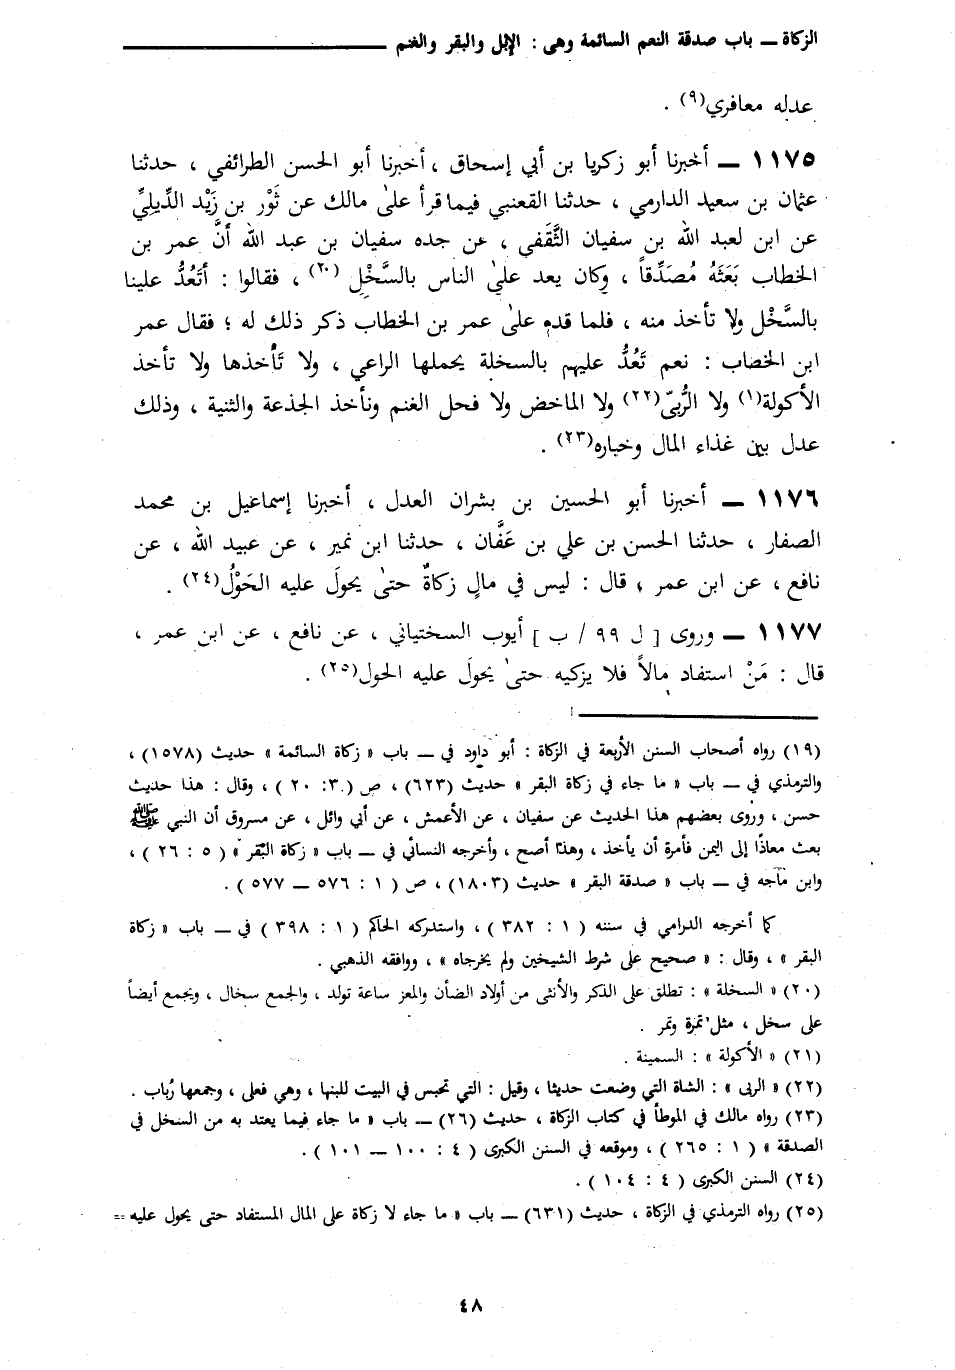 الزكاة ــ باب صدقة النعم السائمة وهى : الإبل والبقر والغنم
عدله معافري(٩) .
١١٧٥ ــ أخبرنا أبو زكريا بن أبي إسحاق ، أخبرنا أبو الحسن الطرائفي ، حدثنا
عثمان بن سعيد الدارمي ، حدثنا القعنبي فيما قرأ علىٰ مالك عن ثَوْر بن زَيْد الدِّيلِيِّ
عن ابن لعبد الله بن سفيان الثَّقَفي ، عن جده سفيان بن عبد الله أنَّ عمر بن
الخطاب بَعَثَهُ مُصَدِّقاً ، وكان يعد علىٰ الناس بالسَّخْلِ (٢٠) ، فقالوا : أتَعُدُّ علينا
بالسَّخْل ولا تأخذ منه ، فلما قدم علىٰ عمر بن الخطاب ذكر ذلك له ؛ فقال عمر
ابن الخصاب : نعم تَعُدُّ عليهم بالسخلة يحملها الراعي ، ولا تَأخذها ولا تأخذ
الأكولة(١) ولا الرُّبىّ(٢٢) ولا الماخض ولا فحل الغنم ونأخذ الجذعة والثنية ، وذلك
عدل بين غذاء المال وخياره(٢٣) .
١١٧٦ ــ أخبرنا أبو الحسين بن بشران العدل ، أخبرنا إسماعيل بن محمد
الصفار ، حدثنا الحسن بن علي بن عَفَّان ، حدثنا ابن نمير ، عن عبيد الله ، عن
نافع ، عن ابن عمر ، قال : ليس في مالٍ زكاةٌ حتىٰ يحولَ عليه الحَوْلُ(٢٤) .
١١٧٧ ــ وروى [ ل ٩٩ / ب ] أيوب السختياني ، عن نافع ، عن ابن عمر ،
قال : مَنْ استفاد مالاً فلا يزكيه حتىٰ يحولَ عليه الحول(٢٥) .
(١٩) رواه أصحاب السنن الأربعة في الزكاة : أبو داود في ــ باب « زكاة السائمة » حديث (١٥٧٨) ،
والترمذي في ــ باب « ما جاء في زكاة البقر » حديث (٦٢٣) ، ص (٣: ٢٠ ) ، وقال : هذا حديث
حسن ، وروى بعضهم هذا الحديث عن سفيان ، عن الأعمش ، عن أبي وائل ، عن مسروق أن النبي ﷺ
بعث معاذًا إلى اليمن فأمرة أن يأخذ ، وهذا أصح ، وأخرجه النسائي في ــ باب « زكاة البقر » ( ٥ : ٢٦ ) ،
وابن ماجه في ــ باب « صدقة البقر » حديث (١٨٠٣) ، ص ( ١ : ٥٧٦ ــ ٥٧٧ ) .
كما أخرجه الدرامي في سننه ( ١ : ٣٨٢ ) ، واستدركه الحاكم ( ١ : ٣٩٨ ) في ــ باب « زكاة
البقر » ، وقال : « صحيح على شرط الشيخين ولم يخرجاه » ، ووافقه الذهبي .
(٢٠) « السخلة » : تطلق على الذكر والأنثى من أولاد الضأن والمعز ساعة تولد ، والجمع سخال ، ويجمع أيضاً
على سخل ، مثل تمرة وتمر .
(٢١) « الأكولة » : السمينة .
(٢٢) « الربى » : الشاة التي وضعت حديثا ، وقيل : التي تحبس في البيت للبنها ، وهي فعلى ، وجمعها رُباب .
(٢٣) رواه مالك في الموطأ في كتاب الزكاة ، حديث (٢٦) ــ باب « ما جاء فيما يعتد به من السخل في
الصدقة » ( ١ : ٢٦٥ ) ، وموقعه في السنن الكبرى ( ٤ : ١٠٠ ــ ١٠١ ) .
(٢٤) السنن الكبرى ( ٤ : ١٠٤ ) .
(٢٥) رواه الترمذي في الزكاة ، حديث (٦٣١) ــ باب « ما جاء لا زكاة على المال المستفاد حتى يحول عليه ==
٤٨